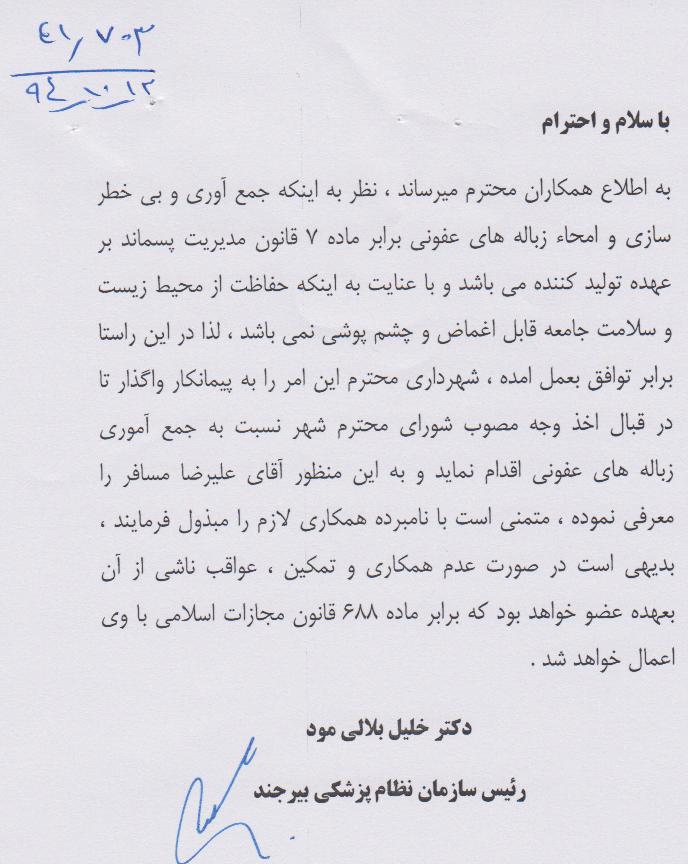 ٤١/٧٠٣
٩٤/١٠/١٢
با سلام و احترام
به اطلاع همکاران محترم میرساند ، نظر به اینکه جمع آوری و بی خطر
سازی و امحاء زباله های عفونی برابر ماده ۷ قانون مدیریت پسماند بر
عهده تولید کننده می باشد و با عنایت به اینکه حفاظت از محیط زیست
و سلامت جامعه قابل اغماض و چشم پوشی نمی باشد ، لذا در این راستا
برابر توافق بعمل امده ، شهرداری محترم این امر را به پیمانکار واگذار تا
در قبال اخذ وجه مصوب شورای محترم شهر نسبت به جمع آموری
زباله های عفونی اقدام نماید و به این منظور آقای علیرضا مسافر را
معرفی نموده ، متمنی است با نامبرده همکاری لازم را مبذول فرمایند ،
بدیهی است در صورت عدم همکاری و تمکین ، عواقب ناشی از آن
بعهده عضو خواهد بود که برابر ماده ۶۸۸ قانون مجازات اسلامی با وی
اعمال خواهد شد .
دکتر خلیل بلالی مود
رئیس سازمان نظام پزشکی بیرجند